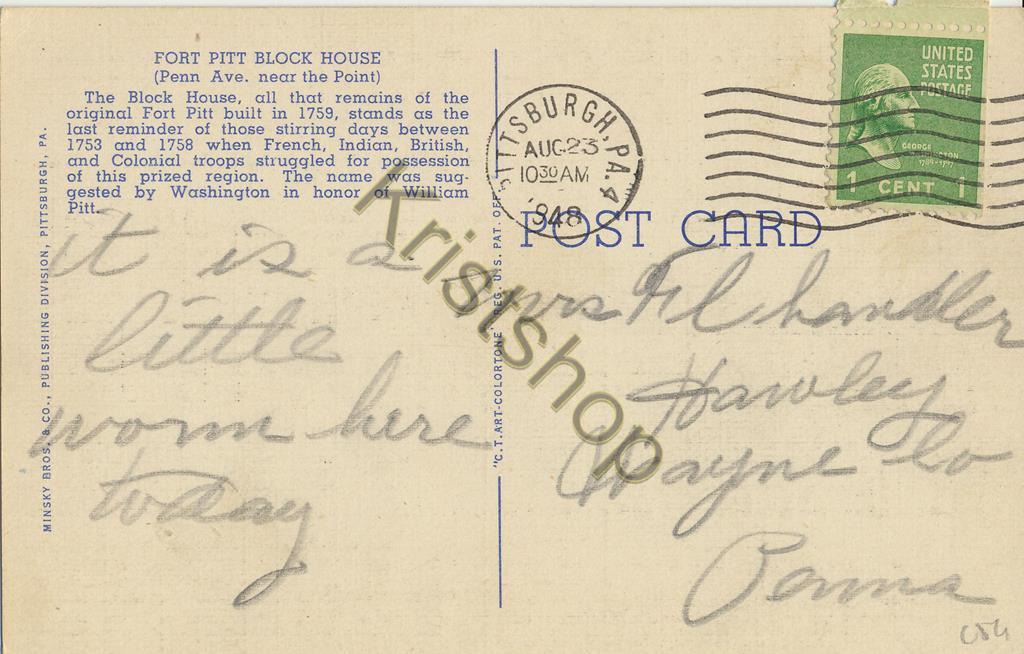 FORT PITT BLOCK HOUSE
(Penn Ave. near the Point)
The Block House, all that remains of the
original Fort Pitt built in 1759, stands as the
last reminder of those stirring days between
1753 and 1758 when French, Indian, British,
and Colonial troops struggled for possession
of this prized region. The name was sug-
gested by Washington in honor of William
Pitt.
it is a
little
worm here
today
MINSKY BROS. & CO., PUBLISHING DIVISION, PITTSBURGH, PA.
"C.T. ART-COLORTONE" REG. U.S. PAT. OFF.
PITTSBURGH, PA. 4
AUG 23
10 30 AM
1948
UNITED
STATES
POSTAGE
GEORGE
WASHINGTON
1789-1797
1 CENT 1
POST CARD
Mrs Chandler
Hawley
Wayne Co
Penna
Kristshop